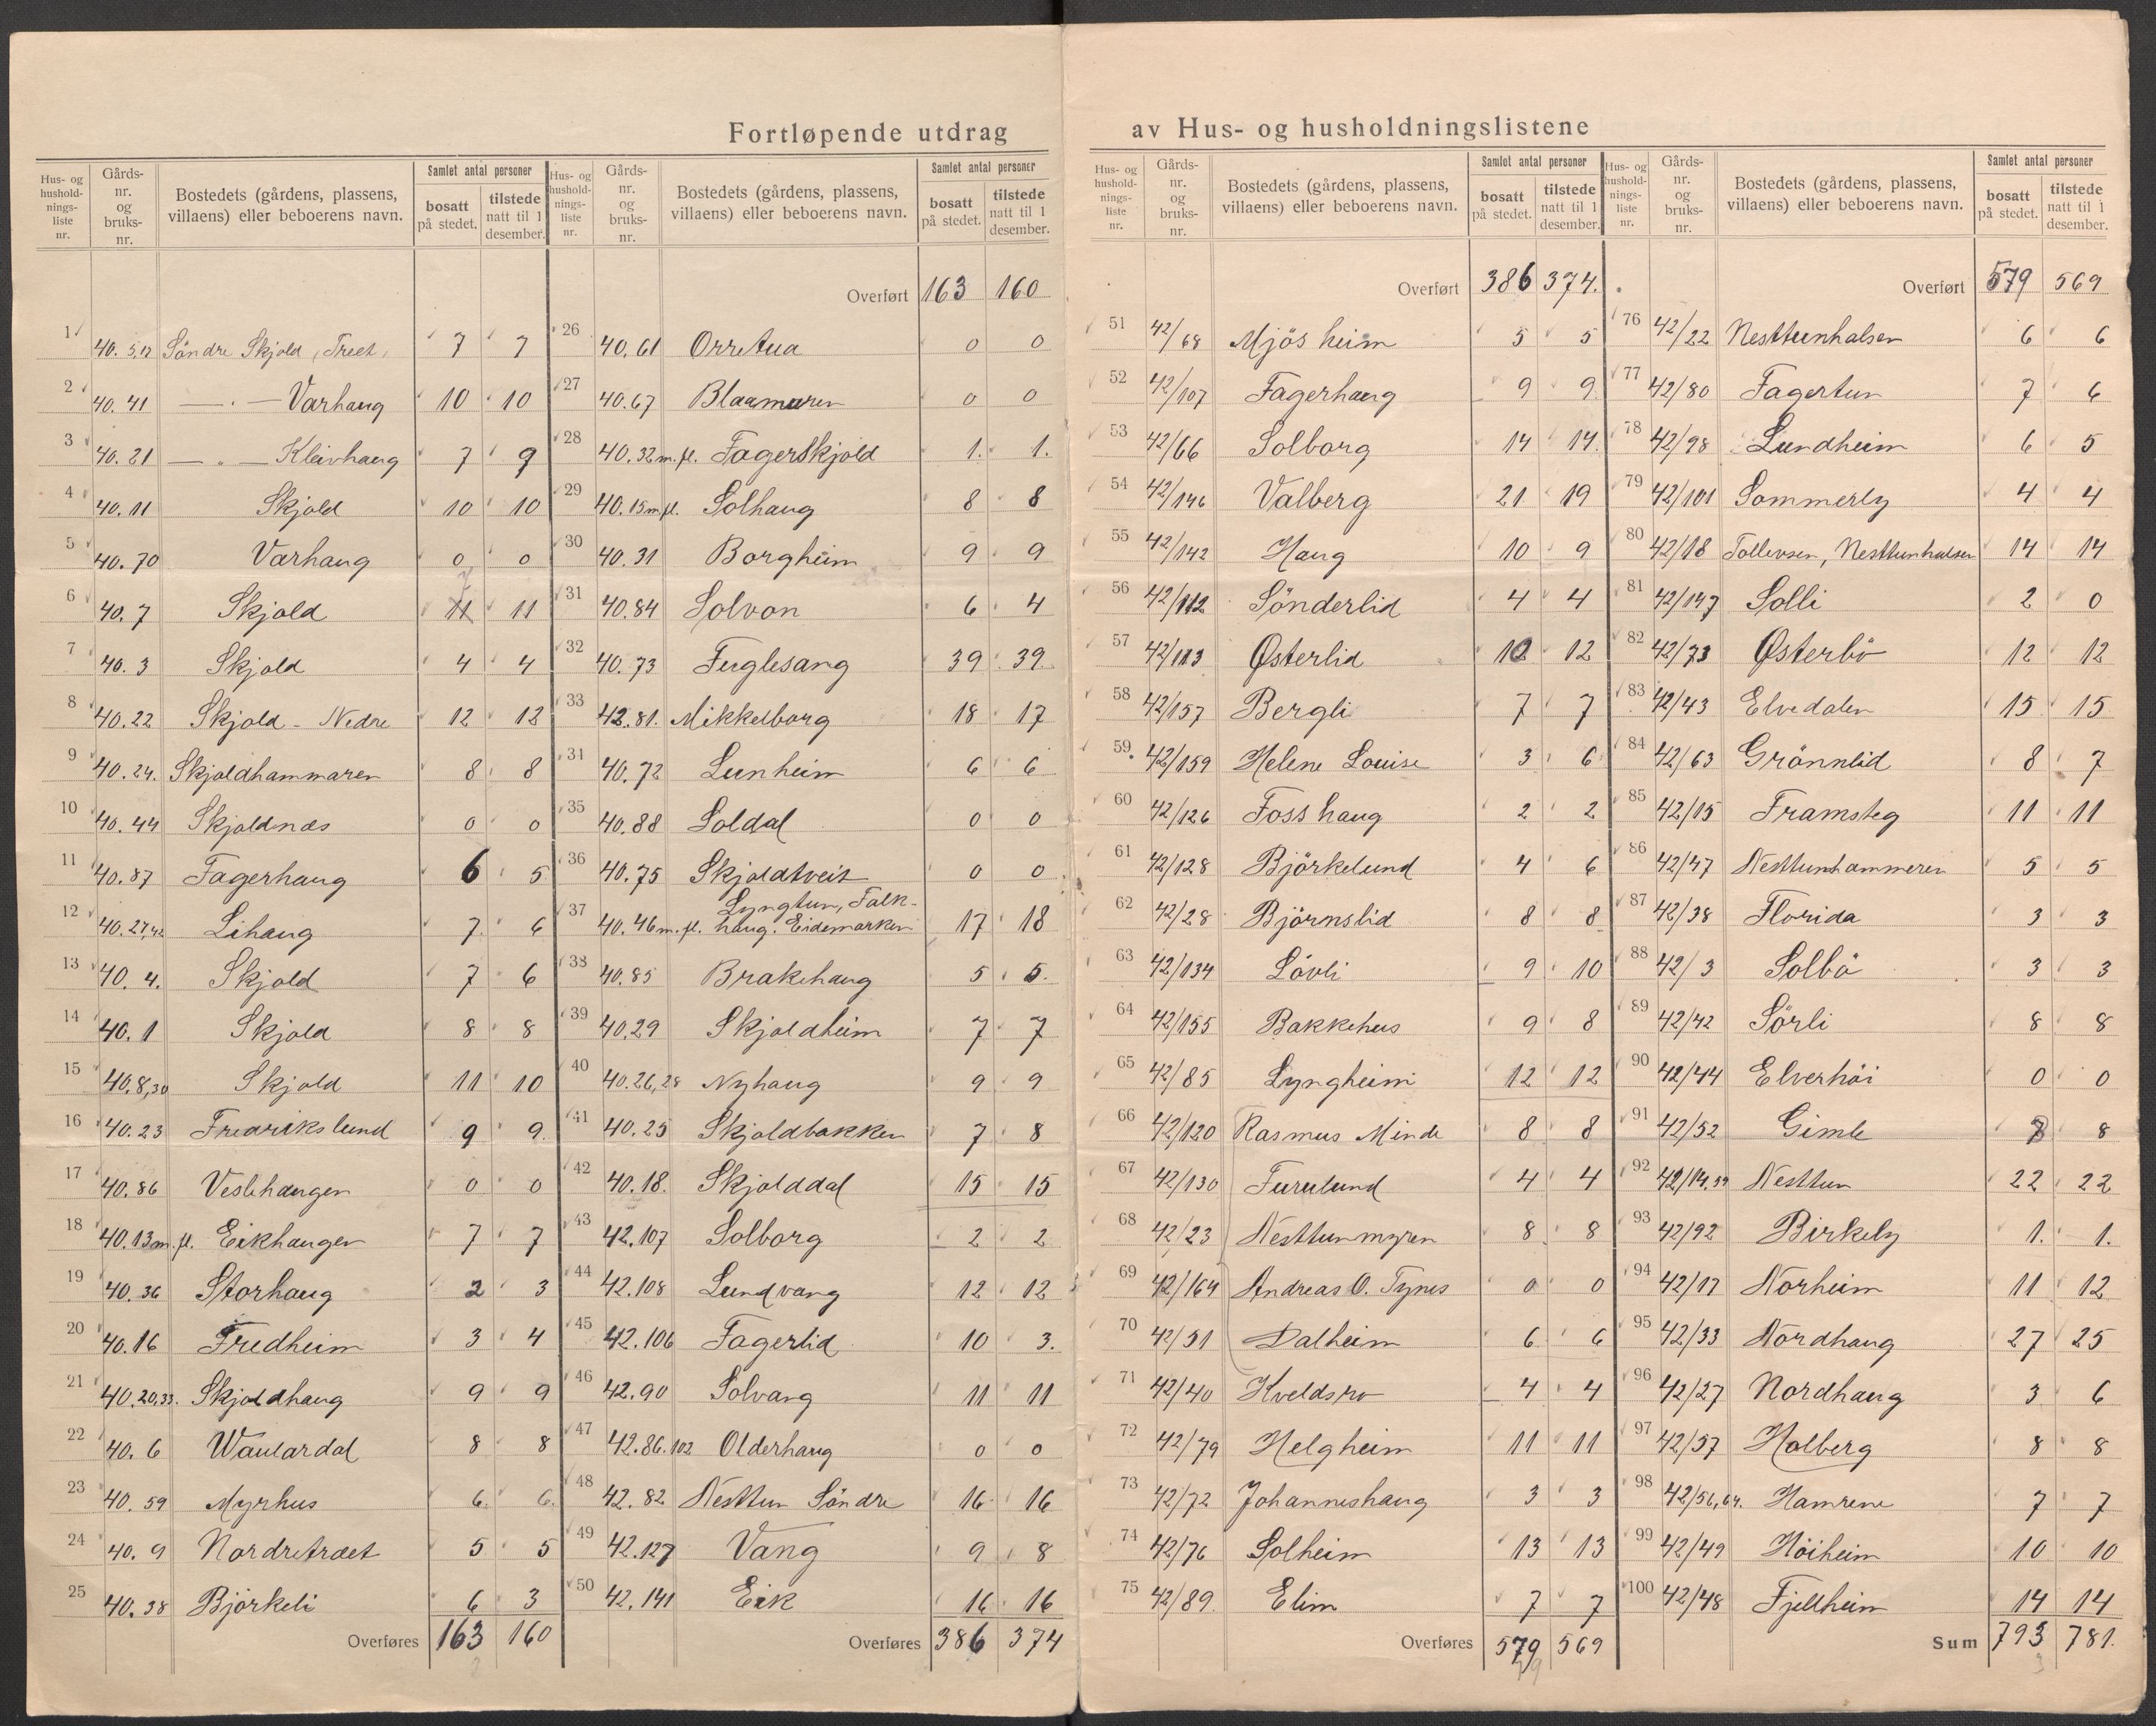 Fortløpende utdrag av Hus- og husholdningslistene
Hus- og husholdnings-liste nr. | Gårds-nr. og bruks-nr. | Bostedets (gårdens, plassens, villaens) eller beboerens navn. | Samlet antal personer: bosatt på stedet. | tilstede natt til 1 desember.
1 40.5,17 Söndre Skjold, Treet, 7 7
2 40.41 — " — Varhaug 10 10
3 40.21 — " — Kleivhaug 7 9
4 40.11 Skjold 10 10
5 40.70 Varhaug 0 0
6 40.7 Skjold 11 11
7 40.3 Skjold 4 4
8 40.22 Skjold - Nedre 12 12
9 40.24. Skjoldhammaren 8 8
10 40.44 Skjoldnes 0 0
11 40.87 Fagerhaug 6 5
12 40.27,42 Lihaug 7 6
13 40.4. Skjold 7 6
14 40.1 Skjold 8 8
15 40.8,30 Skjold 11 10
16 40.23 Fredrikslund 9 9
17 40.86 Veslehaugen 0 0
18 40.13 m.fl. Eikhaugen 7 7
19 40.36 Storhaug 2 3
20 40.16 Fredheim 3 4
21 40.20,33. Skjoldhaug 9 9
22 40.6 Waulardal 8 8
23 40.59 Myrhus 6. 6.
24 40.9 Nordretræet 5 5
25 40.38 Björkeli 6 3
Overføres 163 160
Hus- og husholdnings-liste nr. | Gårds-nr. og bruks-nr. | Bostedets (gårdens, plassens, villaens) eller beboerens navn. | Samlet antal personer: bosatt på stedet. | tilstede natt til 1 desember.
Overført 163 160
26 40.61 Orretua 0 0
27 40.67 Blaamuren 0 0
28 40.32 m.fl. Fagerskjold 1. 1.
29 40.15 m.fl. Solhaug 8 8
30 40.31 Borgheim 9 9
31 40.84 Solvon 6 4
32 40.73 Fuglesang 39 39.
33 42.81. Mikkelborg 18 17
31 40.72 Lunheim 6 6
35 40.88 Soldal 0 0
36 40.75 Skjoldtveit 0 0
37 40.46 m.fl. Lyngtun, Falk-
haug. Eidemarken 17 18
38 40.85 Brakehaug 5 5.
39 40.29 Skjoldheim 7 7
40 40.26,28 Nyhaug 9 9
41 40.25 Skjoldbakken 7 8
42 40.18. Skjolddal 15 15
43 42.107 Solborg 2 2
44 42.108 Lundvang 12 12
45 42.106 Fagerlid 10 3.
46 42.90 Solvang 11 11
47 42.86.102 Olderhaug 0 0
48 42.82 Nesttun Söndre 16 16
49 42.127 Vang 9 8
50 42.141 Eik 16 16
Overføres 386 374
Hus- og husholdnings-liste nr. | Gårds-nr. og bruks-nr. | Bostedets (gårdens, plassens, villaens) eller beboerens navn. | Samlet antal personer: bosatt på stedet. | tilstede natt til 1 desember.
Overført 386 374.
51 42/68 Mjösheim 5 5
52 42/107 Fagerhaug 9 9
53 42/66 Solborg 14 14
54 42/146 Valberg 21 19
55 42/142 Haug 10 9
56 42/112 Sönderlid 4 4
57 42/113 Østerlid 12 12
58 42/157 Bergli 7 7
59 42/159 Helene Louise 3 6
60 42/126 Fosshaug 2 2
61 42/128 Björkelund 4 6
62 42/28 Björnslid 8 8
63 42/134 Lövli 9 10
64 42/155 Bakkehus 9 8
65 42/85 Lyngheim 12 12
66 42/120 Rasmus Minde 8 8
67 42/130 Furulund 4 4
68 42/23 Nesttunmyren 8 8
69 42/164 Andreas O. Tynes 0 0
70 42/51 Dalheim 6 6
71 42/40 Kveldsro 4 4
72 42/79 Helgheim 11 11
73 42/72 Johanneshaug 3 3
74 42/76 Solheim 13 13
75 42/89. Elim 7 7
Overføres 579 569
Hus- og husholdnings-liste nr. | Gårds-nr. og bruks-nr. | Bostedets (gårdens, plassens, villaens) eller beboerens navn. | Samlet antal personer: bosatt på stedet. | tilstede natt til 1 desember.
Overført 579 569
76 42/22 Nesttunhalsen 6 6
77 42/80 Fagertun 7 6
78 42/98 Lundheim 6 5
79 42/101 Sommerly 4 4
80 42/18 Tollevsen, Nesttunhalsen 14 14
81 42/147 Solli 2 0
82 42/73 Østerbö 12 12
83 42/43 Elvedalen 15 15
84 42/63 Grönnlid 8 7
85 42/15 Framsteg 11 11
86 42/47 Nesttunhammeren 5 5
87 42/38 Florida 3 3
88 42/3 Solbö 3 3
89 42/42 Sörli 8 8
90 42/44 Elverhöi 0 0
91 42/52 Gimle 8 8
92 42/14.39 Nesttun 22 22
93 42/92 Birkely 1. 1.
94 42/17 Norheim 11 12
95 42/33 Nordhaug 27 25
96 42/27 Nordhaug 3 6
97 42/57 Holberg 8 8
98 42/56,64. Hamrene 7 7
99 42/49 Höiheim 10 10
100 42/48 Fjellheim 14 14
Sum 793 781.